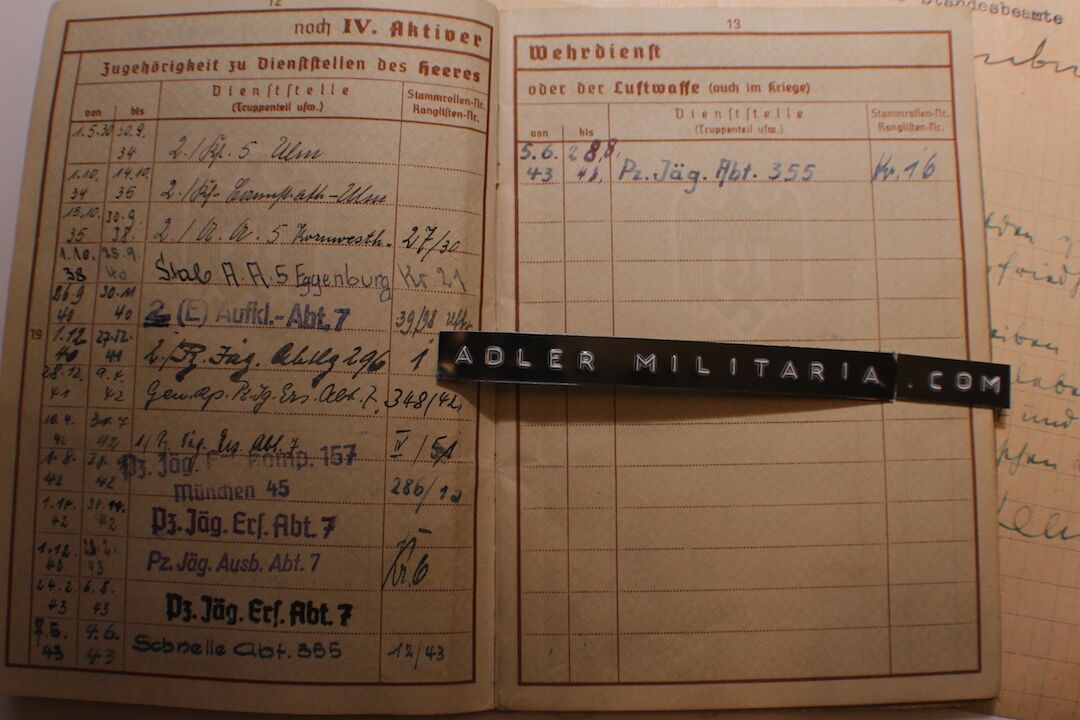 12
noch IV. Aktiver
Zugehörigkeit zu Dienststellen des Heeres
von bis Dienststelle (Truppenteil usw.) Stammrollen-Nr. Ranglisten-Nr.
1.5.30 30.9.34 2./Kf. 5 Ulm
1.10.34 14.10.35 2./Kf. Ulm
15.10.35 30.9.38. 2./A. A. 5 Kornwesth. 27/30
1.10.38 25.9.40 Stab A. A 5 Eggenburg Kr. 21
26.9.40 30.11.40 2 (E) Aufkl.-Abt. 7 39/98
19
1.12.40 27.12.41 2./Pz. Jäg. Abtlg 296 1
28.12.41 9.4.42 Gen. Kp. P. Jg. Ers. Abt. 7. 348/42
10.4.42 31.7.42 1/ Pz. Jg. Ers. Abt. 7 IV/51
1.8.42 42 Pz. Jäg. Komp. 157
München 45 286/
42 42 Pz. Jäg. Ers. Abt. 7
1.12.42 43 Pz. Jäg. Ausb. Abt. 7 Kr. 6
24.2.43 6.5.43 Pz. Jäg. Ers. Abt. 7
7.5.43 4.6.43 Schnelle Abt. 355 12/43
13
Wehrdienst
oder der Luftwaffe (auch im Kriege)
von bis Dienststelle (Truppenteil usw.) Stammrollen-Nr. Ranglisten-Nr.
5.6.43 28.8. Pz. Jäg. Abt. 355 Kr. 16
ADLER MILITARIA.COM
Standesbeamte
und